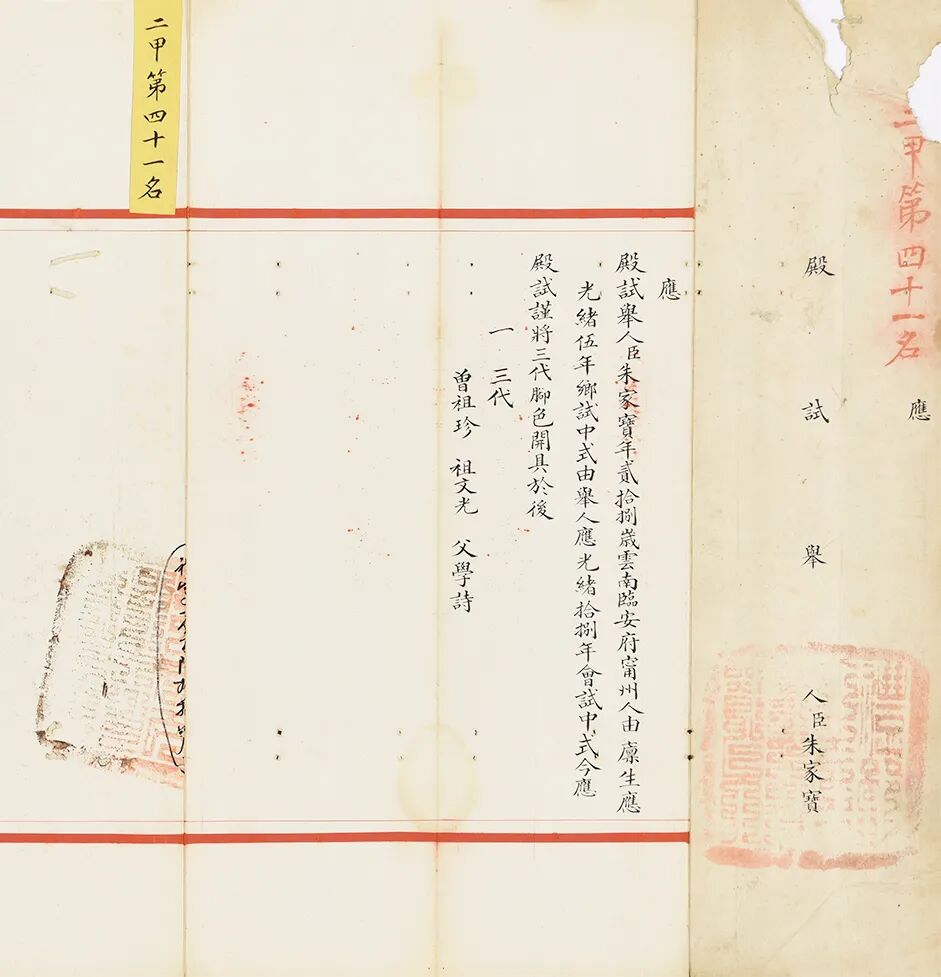 二甲第四十一名
應
殿試舉
人臣朱家寶
應
殿試舉人臣朱家寶年貳拾捌歲雲南臨安府甯州人由廪生應
光緒伍年鄉試中式由舉人應光緒拾捌年會試中式今應
殿試謹將三代脚色開具於後
一 三代
曾祖珍 祖文光 父學詩
二甲第四十一名